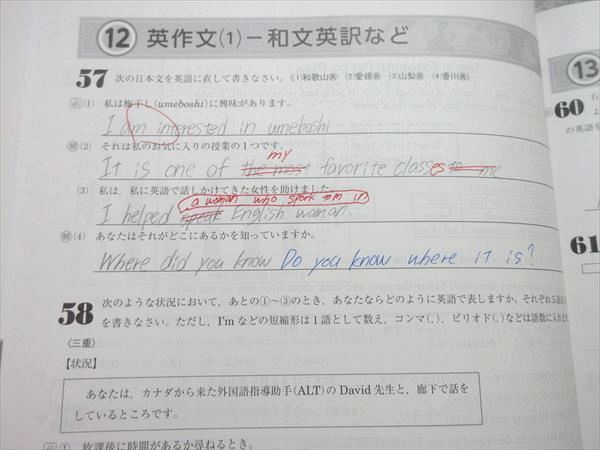 12 英作文(1)－和文英訳など
57 次の日本文を英語に直して書きなさい。 (1)和歌山県 (2)愛媛県 (3)山梨県 (4)香川県
(1) 私は梅干し(umeboshi)に興味があります。
I am interested in umeboshi
(2) それは私のお気に入りの授業の1つです。
my
It is one of the most favorite classes to me
(3) 私は，私に英語で話しかけてきた女性を助けました。
a woman who spork tom in
I helped speak English woman.
(4) あなたはそれがどこにあるかを知っていますか。
Where did you know Do you know where it is?
58 次のような状況において，あとの①～③のとき，あなたならどのように英語で表しますか。それぞれ
を書きなさい。ただし，I'mなどの短縮形は1語として数え，コンマ(，)，ピリオド(．)などは語数に入れ
〈三重〉
【状況】
あなたは，カナダから来た外国語指導助手(ALT)のDavid先生と，廊下で話を
しているところです。
① 放課後に時間があるか尋ねるとき。
13
60 右
の英語を
61